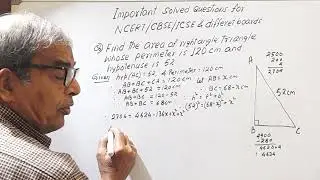 Important Solved Questions for
NCERT/CBSE/ICSE & different boards
Q Find the area of right angle triangle
whose perimeter is 120 cm and
hypotenuse is 52
Given Hyp(AC) = 52, & Perimeter = 120cm
AB+BC+CA = 120cm
AB+BC+52 = 120cm
AB+BC = 120-52
AB+BC = 68cm
Let AB = x cm
∴ BC = 68-x cm
(52)² = (68-x)² + x²
2704 = 4624 - 136x + x² + x²
2500
200
4
2704
A
52cm
B
C
4624